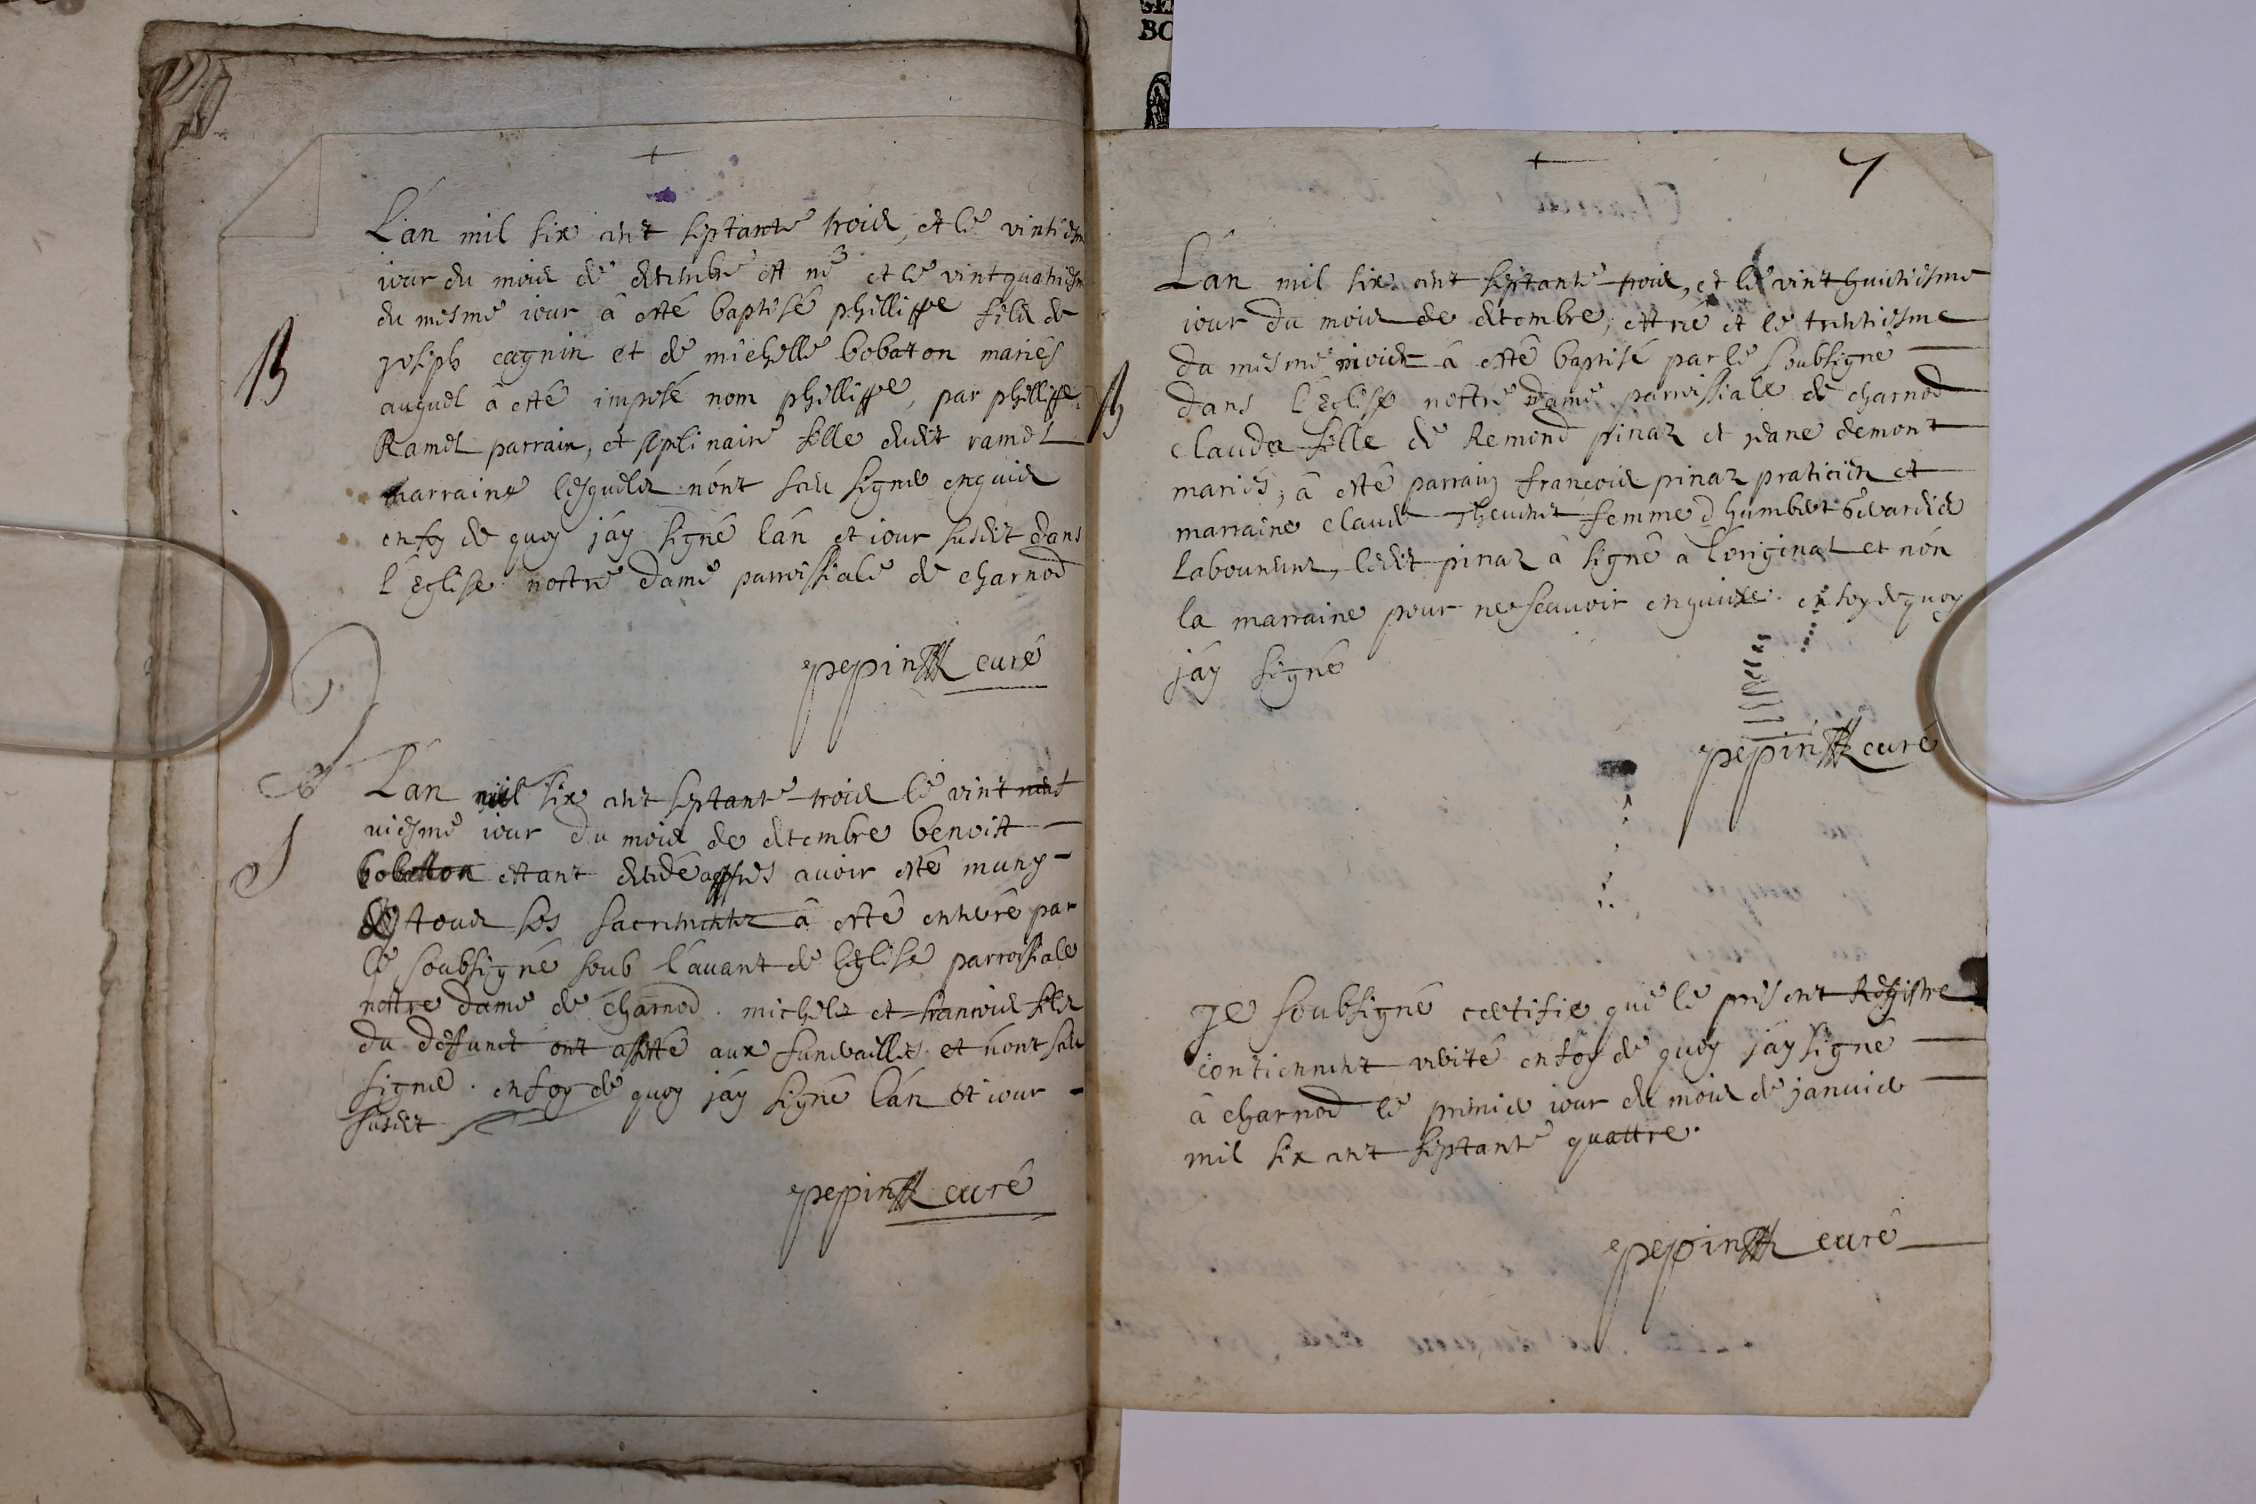 L'án mil six cent septante trois, et le vintiesm
iour du mois de decembre est né et le vintquatriesm
du mesme iour â esté baptisé phillippe fils de
joseph cagnin et de michelle bobatton mariés
auquel â esté imposé nom phillippe, par phillippe
Ramel parrain, et fille dudit ramel
marraine lesquels n'ónt sceu signer enquis
en foy de quoy j'áy signé l'án et iour susdit dans
l'Eglise nottre dame parroissiale de charnod
pepin curé
L'án mil six cent septante trois le vint neuf
uiesme iour du mois de decembre benoist
bobatton estant decedé appres avoir esté muny
de tous ses sacrements â esté enterré par
le soubsigné soub l'avant de l'eglise parroissiale
nottre dame de charnod. michel et francois fils
du deffunct ont assité aux funerailles et n'ónt sceu
signer. en foy de quoy j'áy signé l'án et iour
susdit
pepin curé
B
S
+
+
7
L'án mil six cent septante trois, et le vint huictiesme
iour du mois de decembre, est né et le trentiesme
du mesme mois â esté baptisé par le soubsigné
dans l'Eglise nottre dame parroissiale de charnod
clauda fille de Remond pinaz et jeane demont
mariés, â esté parrain francois pinaz praticien et
marraine claude Thevenet femme d'humbert
laboureur, ledit pinaz â signé a l'original et nón
la marraine pour ne scauoir enquise. en foy de quoy
j'áy signé
pepin curé
B
Je soubsigné certifie que le present Registre
contiennent verité en foy de quoy j'áy signé
â charnod le premier iour du mois de januier
mil six cent septante quattre.
pepin curé